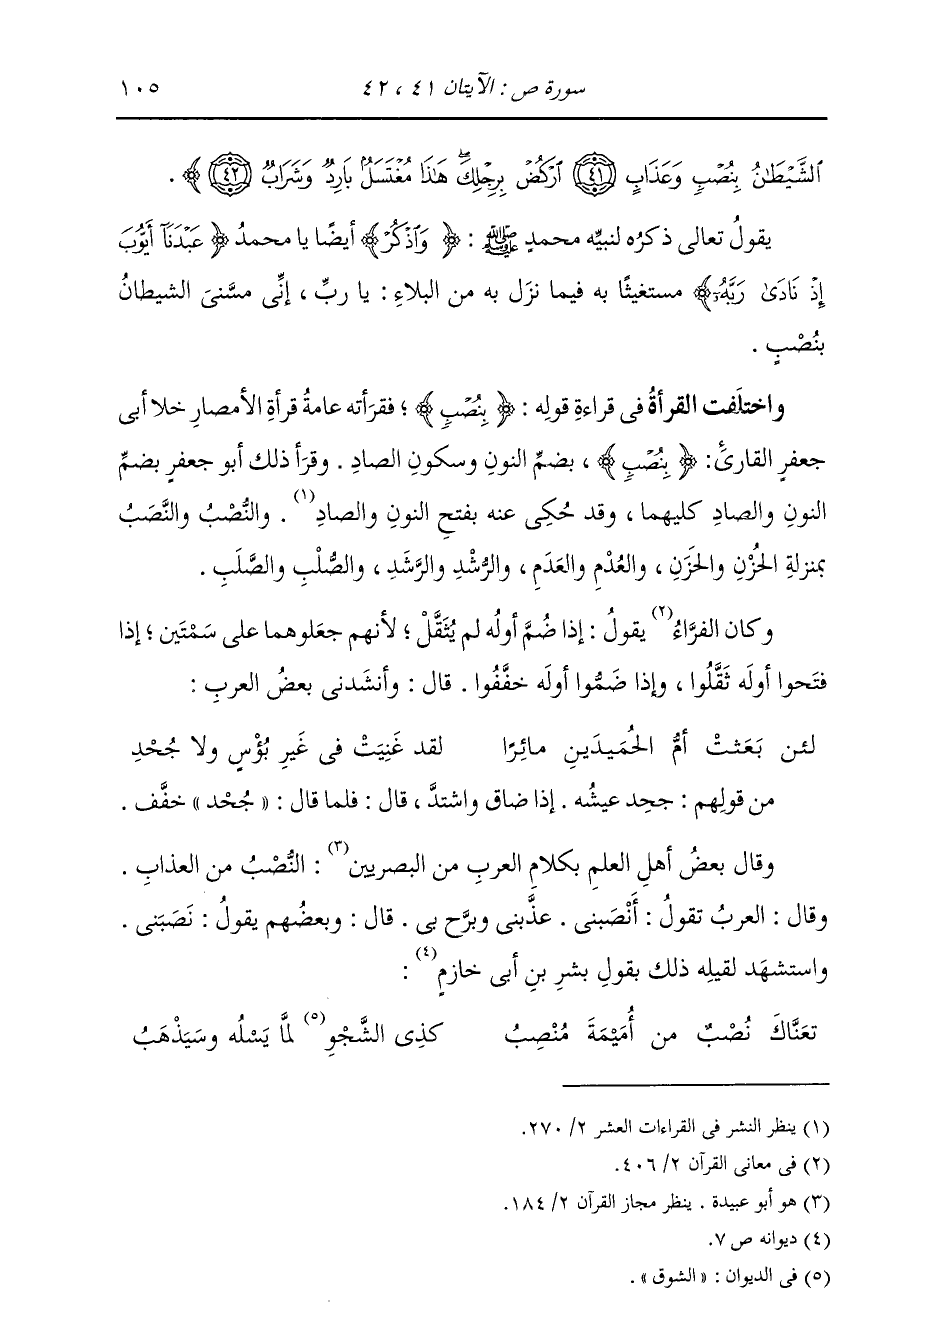 سورة ص : الآيتان ٤١ ، ٤٢ ١٠٥
ٱلشَّيْطَٰنُ بِنُصْبٍ وَعَذَابٍ ﴿٤١﴾ ٱرْكُضْ بِرِجْلِكَۖ هَٰذَا مُغْتَسَلٌۢ بَارِدٌ وَشَرَابٌ ﴿٤٢﴾ ﴾ .
يقولُ تعالى ذكرُه لنبيِّه محمدٍ ﷺ : ﴿ وَٱذْكُرْ ﴾ أيضًا يا محمدُ ﴿ عَبْدَنَآ أَيُّوبَ
إِذْ نَادَىٰ رَبَّهُۥٓ ﴾ مستغيثًا به فيما نزَل به من البلاءِ : يا ربِّ ، إنِّى مسَّنىَ الشيطانُ
بنُصْبٍ .
واختلَفت القرأةُ فى قراءةِ قولِه : ﴿ بِنُصْبٍ ﴾ ؛ فقرَأته عامةُ قرأةِ الأمصارِ خلا أبى
جعفرٍ القارئَ : ﴿ بِنُصْبٍ ﴾ ، بضمِّ النونِ وسكونِ الصادِ . وقرَأ ذلك أبو جعفرٍ بضمِّ
النونِ والصادِ كليهما ، وقد حُكِى عنه بفتحِ النونِ والصادِ(١) . والنُّصْبُ والنَّصَبُ
بمنزلةِ الحُزْنِ والحَزَنِ ، والعُدْمِ والعَدَمِ ، والرُّشْدِ والرَّشَدِ ، والصُّلْبِ والصَّلَبِ .
وكان الفرَّاءُ(٢) يقولُ : إذا ضُمَّ أولُه لم يُثَقَّلْ ؛ لأنهم جعَلوهما على سَمْتَين ؛ إذا
فتَحوا أولَه ثَقَّلُوا ، وإذا ضَمُّوا أولَه خفَّفُوا . قال : وأنشَدنى بعضُ العربِ :
لئن بَعَثتْ أمُّ الحُمَيدَينِ مائِرًا لقد غَنِيَتْ فى غَيرِ بُؤْسٍ ولا جُحْدِ
من قولِهم : جحِد عيشُه . إذا ضاق واشتدَّ ، قال : فلما قال : « جُحْد » خفَّف .
وقال بعضُ أهلِ العلمِ بكلامِ العربِ من البصريين(٣) : النُّصْبُ من العذابِ .
وقال : العربُ تقولُ : أَنْصَبنى . عذَّبنى وبرَّح بى . قال : وبعضُهم يقولُ : نَصَبَنى .
واستشهَد لقيلِه ذلك بقولِ بشرِ بنِ أبى خازمٍ(٤) :
تعَنَّاكَ نُصْبٌ من أُمَيْمَةَ مُنْصِبُ كذِى الشَّجْوِ(٥) لمَّا يَسْلُه وسَيَذْهَبُ
(١) ينظر النشر فى القراءات العشر ٢/ ٢٧٠.
(٢) فى معانى القرآن ٢/ ٤٠٦.
(٣) هو أبو عبيدة . ينظر مجاز القرآن ٢/ ١٨٤.
(٤) ديوانه ص ٧.
(٥) فى الديوان : « الشوق » .